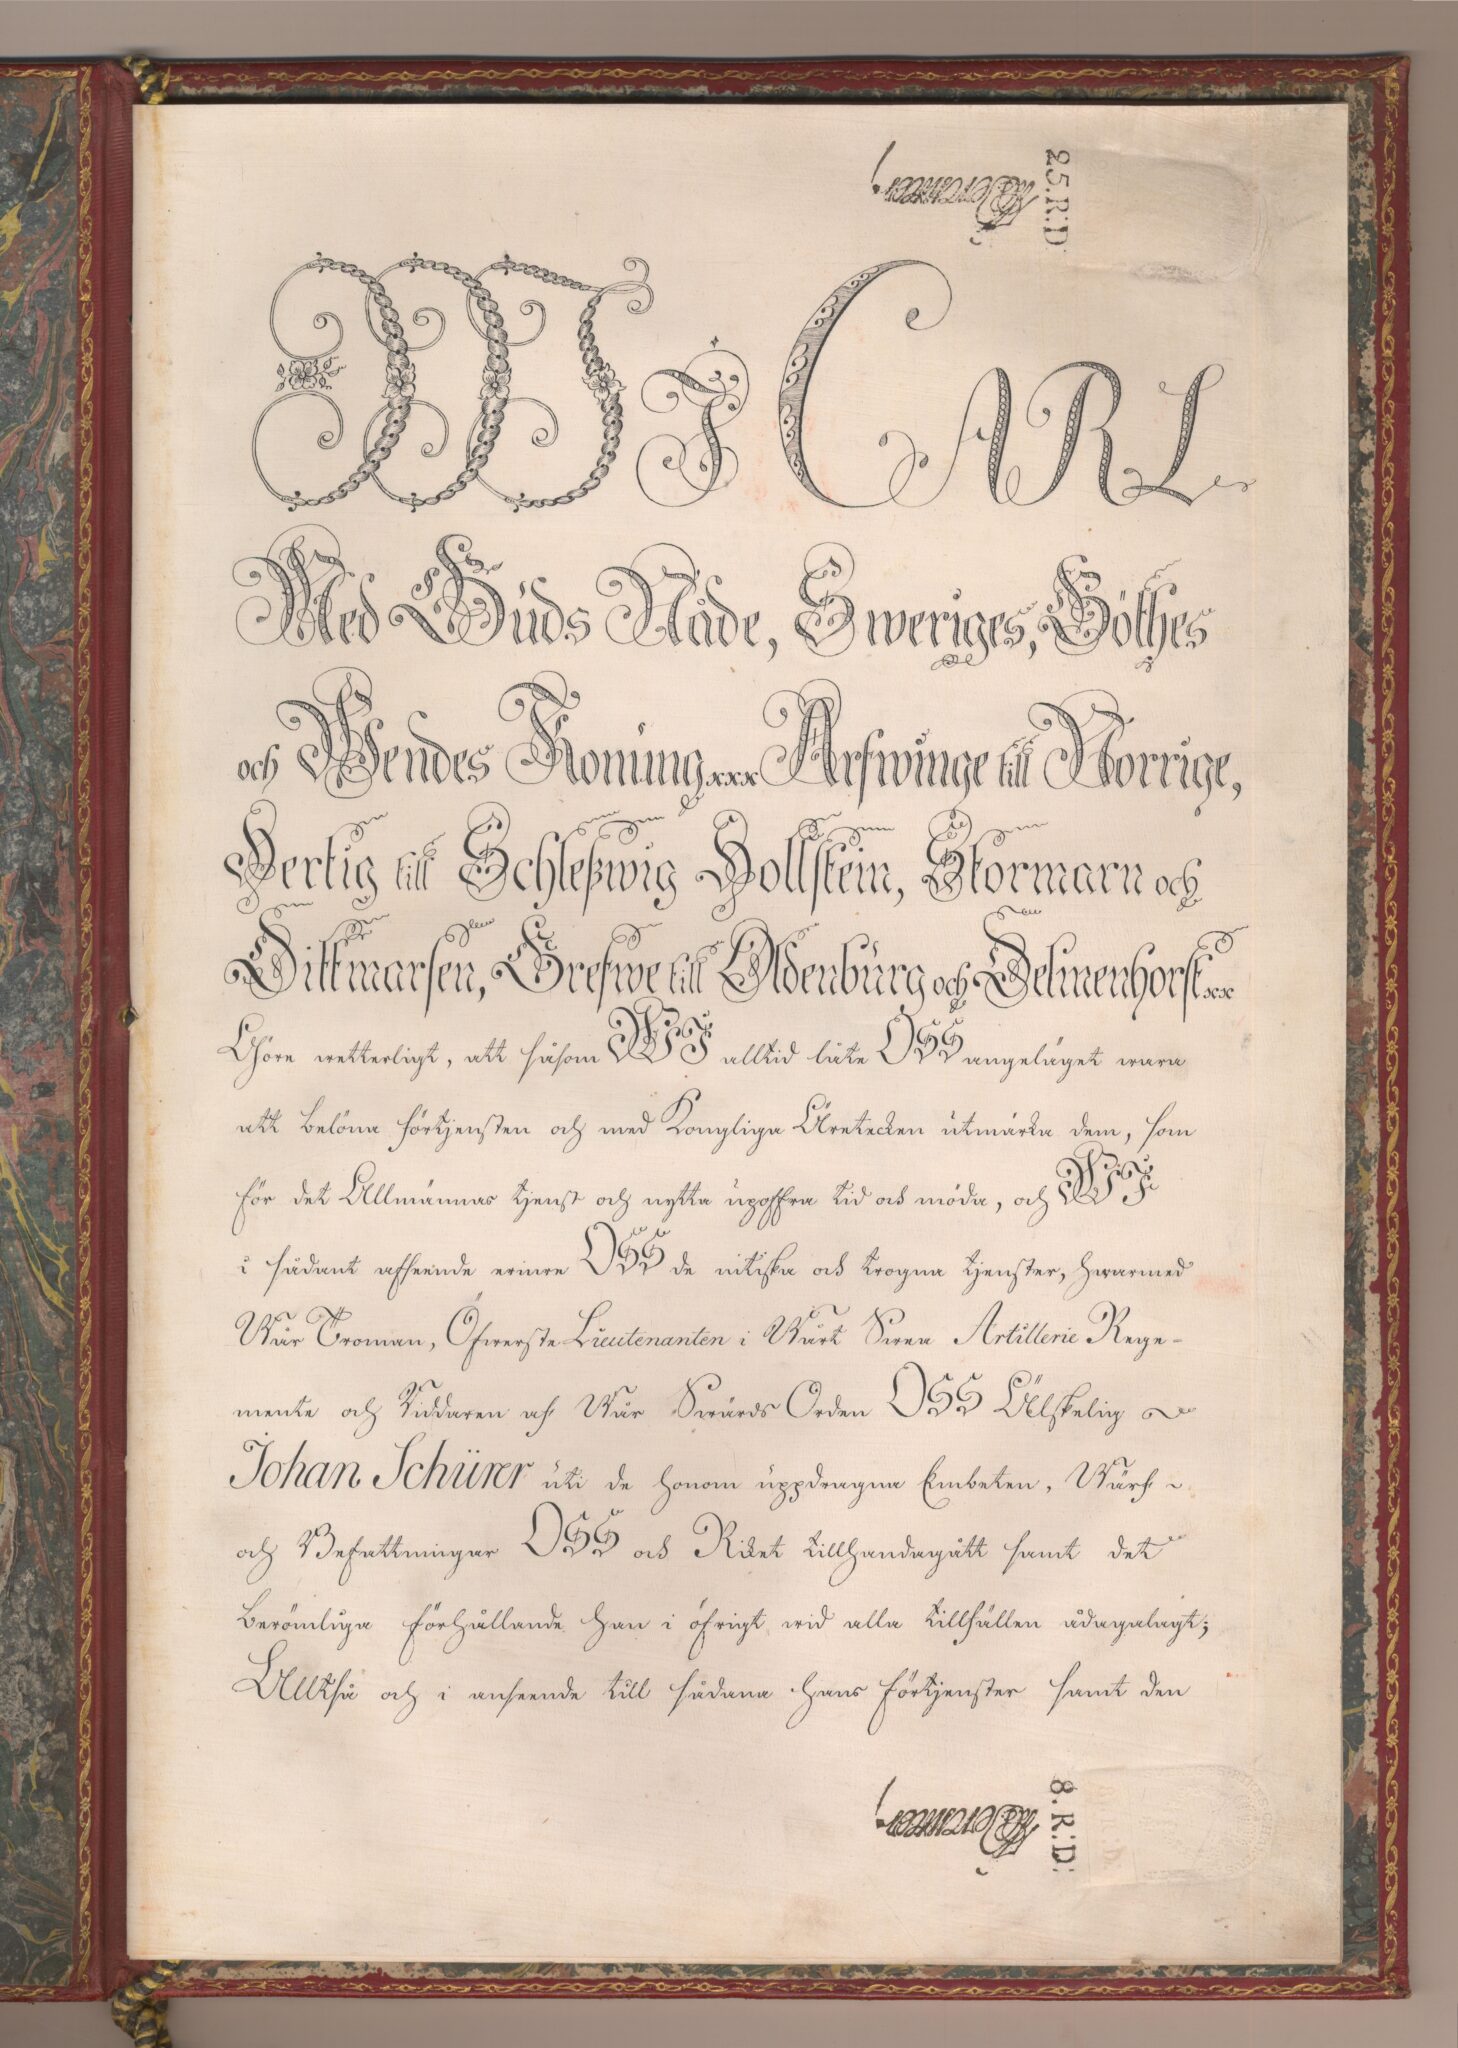 25.R:D:
WJ CARL
Med Gůds Nåde, Sweriges, Göthes
och Wendes Konung xxx Arfwinge till Norrige,
Hertig till Schleßwig Hollstein, Stormarn och
Dittmarsen, Grefwe till Oldenbůrg och Delmenhorst xx
Göre wetterligt, att såsom WJ alltid låte OSS angelägit wara
att belöna förtjensten och med Kongliga Äretecken ůtmärka dem, som
för det Allmännas tjenst och nytta ůpoffra tid och möda, och WJ
i sådant afseende erinre OSS de nitiska och trogna tjenster, hwarmed
Wår Troman, Öfwerste Lieutenanten i Wårt Swea Artillerie Rege-
mente och Riddaren af Wår Swärds Orden OSS Älskelig
Johan Schürer ůti de honom ůppdragna Embeten, Wärf
och Befattningar OSS och Riket tillhandagått samt det
berömliga förhållande han i öfrigt wid alla tillfällen ådagalagt;
Alltså och i anseende till sådana hans förtjenster samt den
8.R:D: